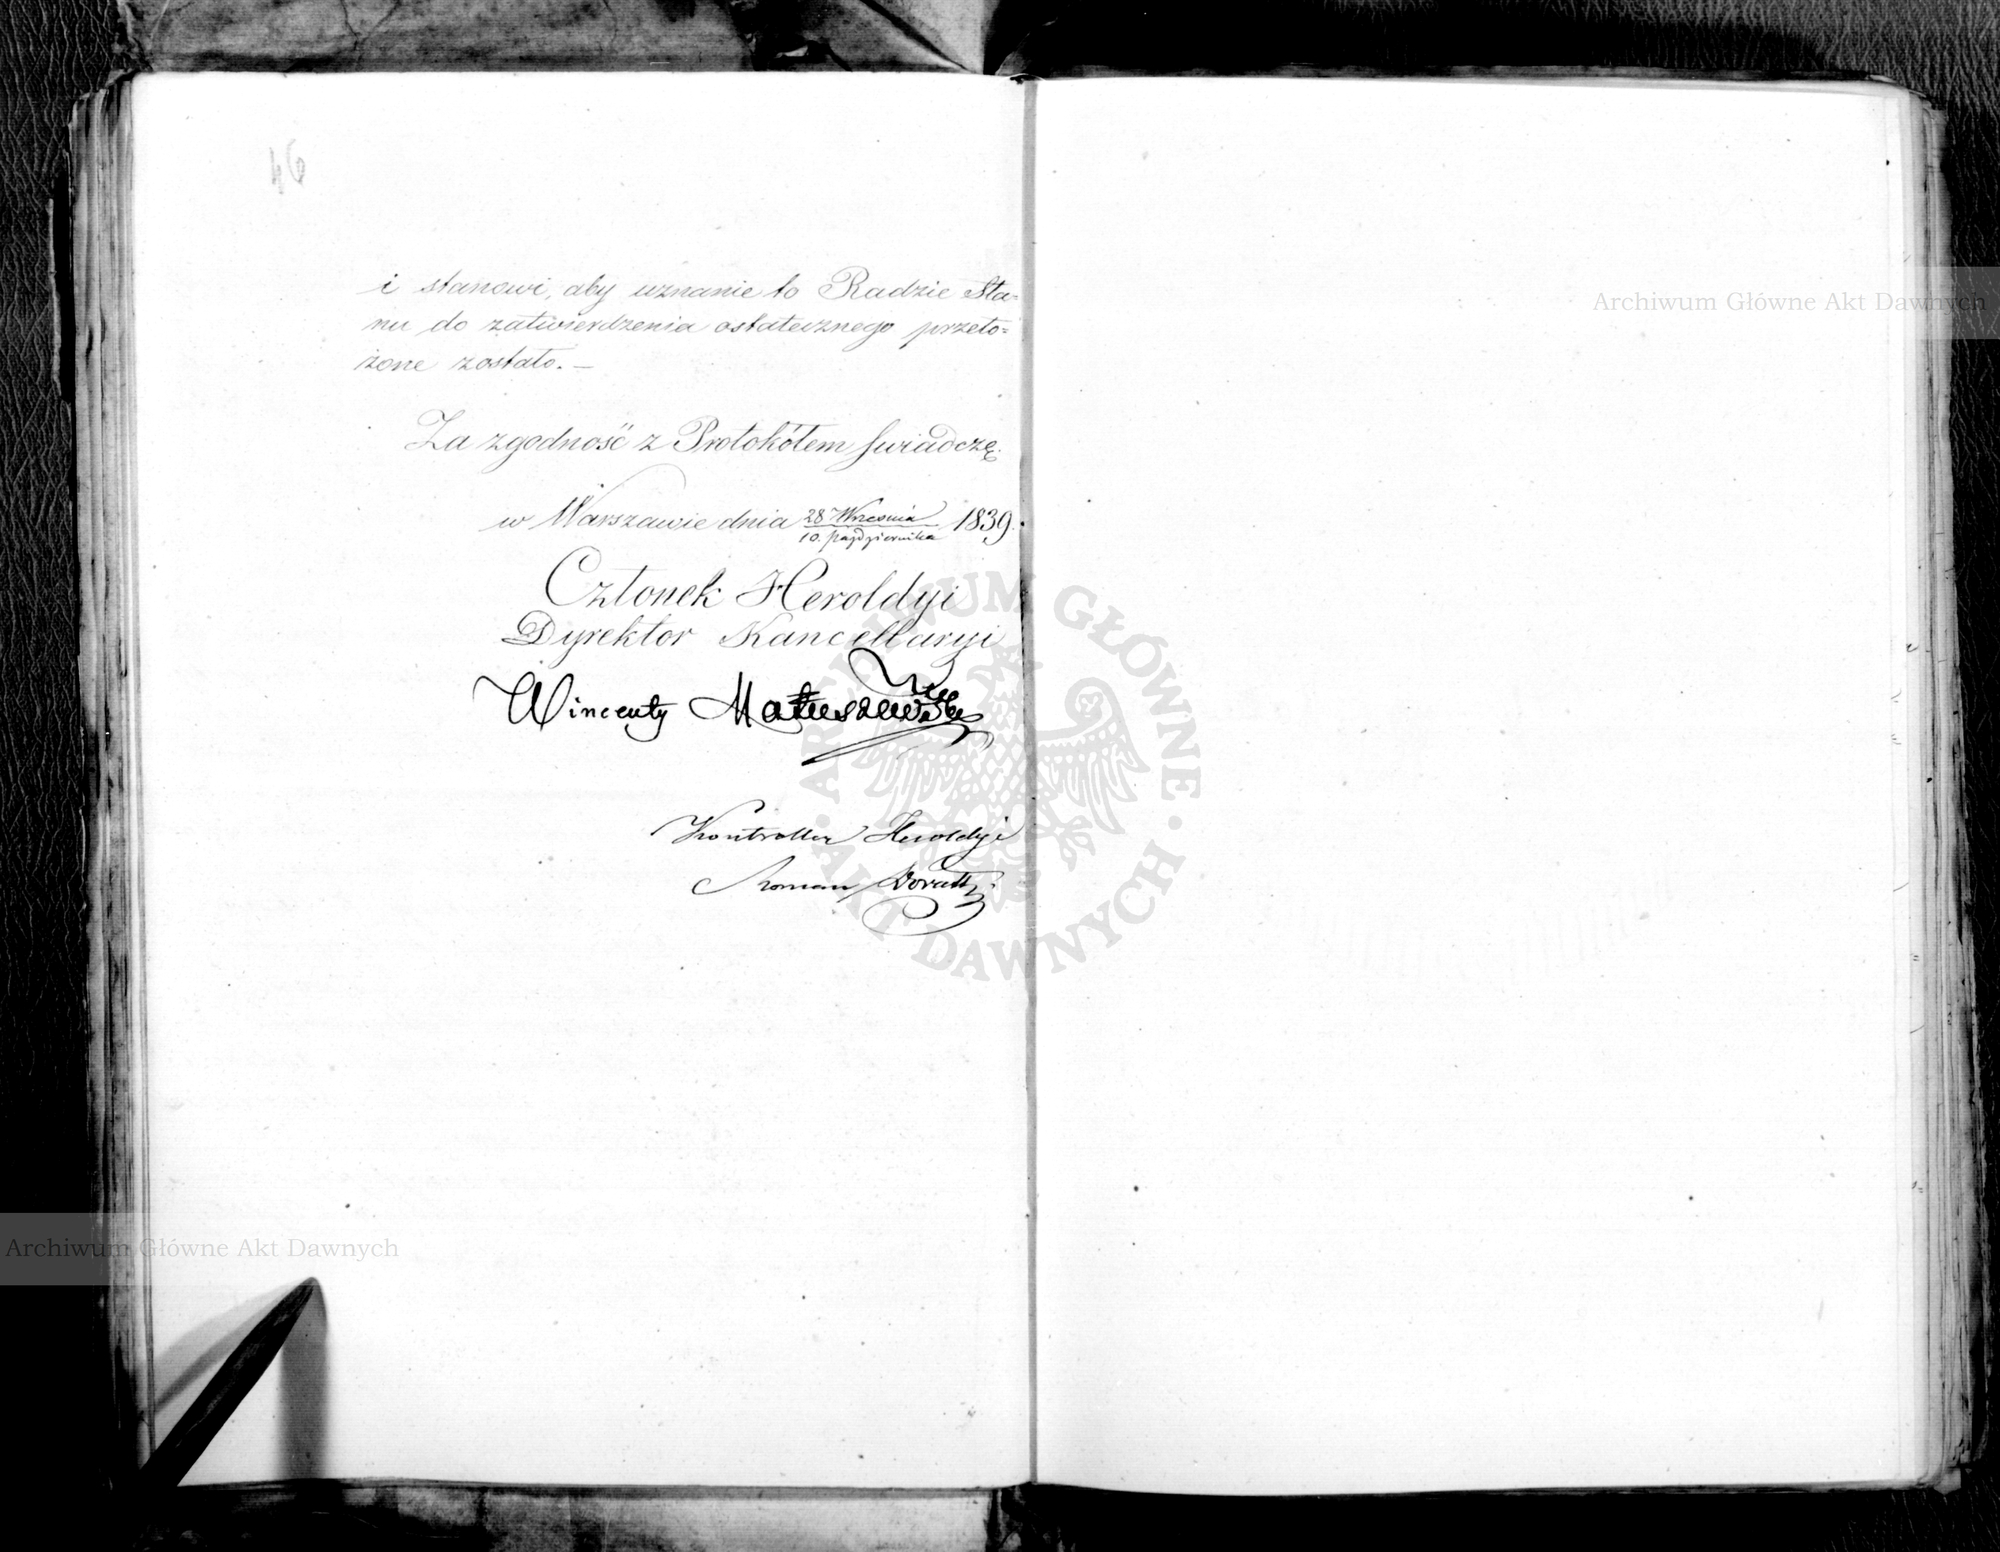 46
i stanowi, aby uznanie to Radzie Sta=
nu do zatwierdzenia ostatecznego przeło=
żone zostało. —
Za zgodność z Protokółem świadczę.
w Warszawie dnia 28 Września / 10. października 1839.
Członek Heroldyi
Dyrektor Kancellaryi
Wincenty Matuszewski
Kontroller Heroldyi
Roman
Archiwum Główne Akt Dawnych
Archiwum Główne Akt Dawnych
ARCHIWUM GŁÓWNE · AKT DAWNYCH ·